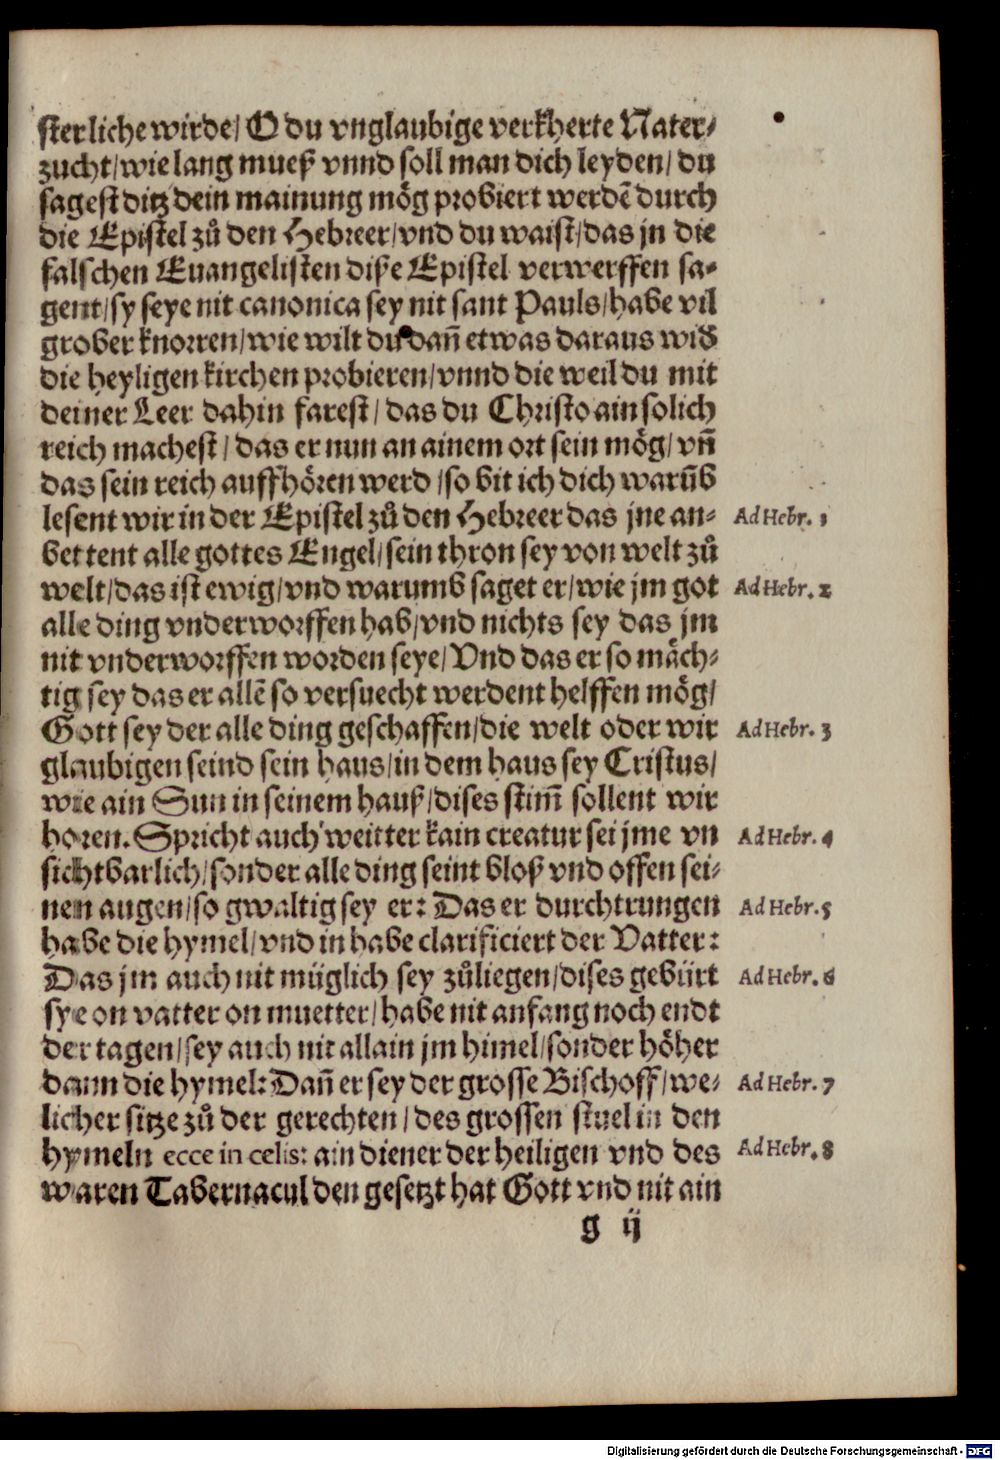 sterliche wirde/ O du vnglaubige verkherte Nater⸗
zucht/ wie lang mueß vnnd soll man dich leyden/ du
sagest ditz dein mainung mög probiert werdẽ durch
die Epistel zů den Hebreer/ vnd du waist/ das jn die
falschen Euangelisten diße Epistel verwerffen sa⸗
gent/ sy seye nit canonica sey nit sant Pauls/ habe vil
grober knorren/ wie wilt du dañ etwas daraus wid
die heyligen kirchen probieren/ vnnd die weil du mit
deiner Leer dahin farest/ das du Christo ain solich
reich machest/ das er nun an ainem ort sein mög/ vñ
das sein reich auffhören werd/ so bit ich dich warũb
lesent wir in der Epistel zů den Hebreer das jne an⸗ Ad Hebr. 1
bettent alle gottes Engel/ sein thron sey von welt zů
welt/ das ist ewig/ vnd warumb saget er/ wie jm got Ad Hebr. 2
alle ding vnderworffen hab/ vnd nichts sey das jm
nit vnderworffen worden seye/ Vnd das er so mäch⸗
tig sey das er allẽ so versuecht werdent helffen mög/
Gott sey der alle ding geschaffen/ die welt oder wir Ad Hebr. 3
glaubigen seind sein haus/ in dem haus sey Cristus/
wie ain Sun in seinem hauß/ dises stim̃ sollent wir
horen. Spricht auch weitter kain creatur sei jme vn Ad Hebr. 4
sichtbarlich/ sonder alle ding seint bloß vnd offen sei⸗
nen augen/ so gwaltig sey er: Das er durchtrungen Ad Hebr. 5
habe die hymel/ vnd in habe clarificiert der Vatter:
Das jm auch nit müglich sey zůliegen/ dises gebürt Ad Hebr. 6
sye on vatter on muetter/ habe nit anfang noch endt
der tagen/ sey auch nit allain jm himel/ sonder höher
dann die hymel: Dañ er sey der grosse Bischoff/ we⸗ Ad Hebr. 7
licher sitze zů der gerechten/ des grossen stuel in den
hymeln ecce in celis: ain diener der heiligen vnd des Ad Hebr. 8
waren Tabernacul den gesetzt hat Gott vnd nit ain
g ij
Digitalisierung gefördert durch die Deutsche Forschungsgemeinschaft - DFG